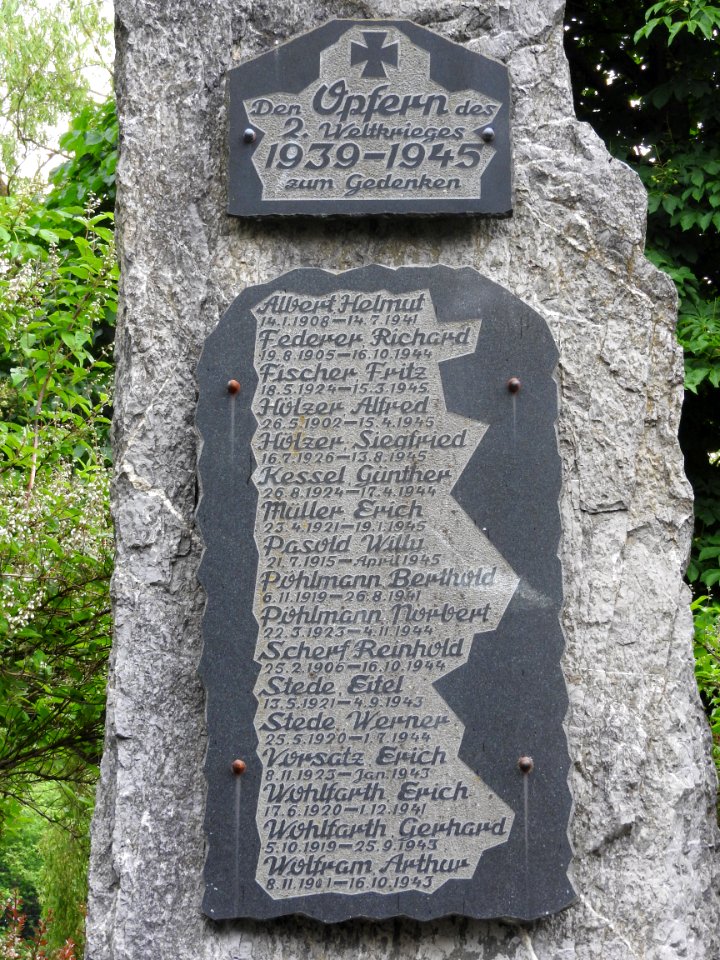 Den Opfern des
2. Weltkrieges
1939–1945
zum Gedenken
Albert Helmut
14.1.1908–14.7.1941
Federer Richard
19.8.1905–16.10.1944
Fischer Fritz
18.5.1924–15.3.1945
Hölzer Alfred
26.5.1902–15.4.1945
Hölzer Siegfried
16.7.1926–13.8.1945
Kessel Günther
26.8.1924–17.4.1944
Müller Erich
23.4.1921–19.1.1945
Pasold Willy
21.7.1915–April 1945
Pöhlmann Berthold
6.11.1919–26.8.1941
Pöhlmann Norbert
22.3.1923–4.11.1944
Scherf Reinhold
25.2.1906–16.10.1944
Stede Eitel
13.5.1921–4.9.1943
Stede Werner
25.5.1920–1.7.1944
Vorsatz Erich
8.11.1923–Jan.1943
Wohlfarth Erich
17.6.1920–1.12.1941
Wohlfarth Gerhard
5.10.1919–25.9.1943
Wolfram Arthur
8.11.1901–16.10.1943